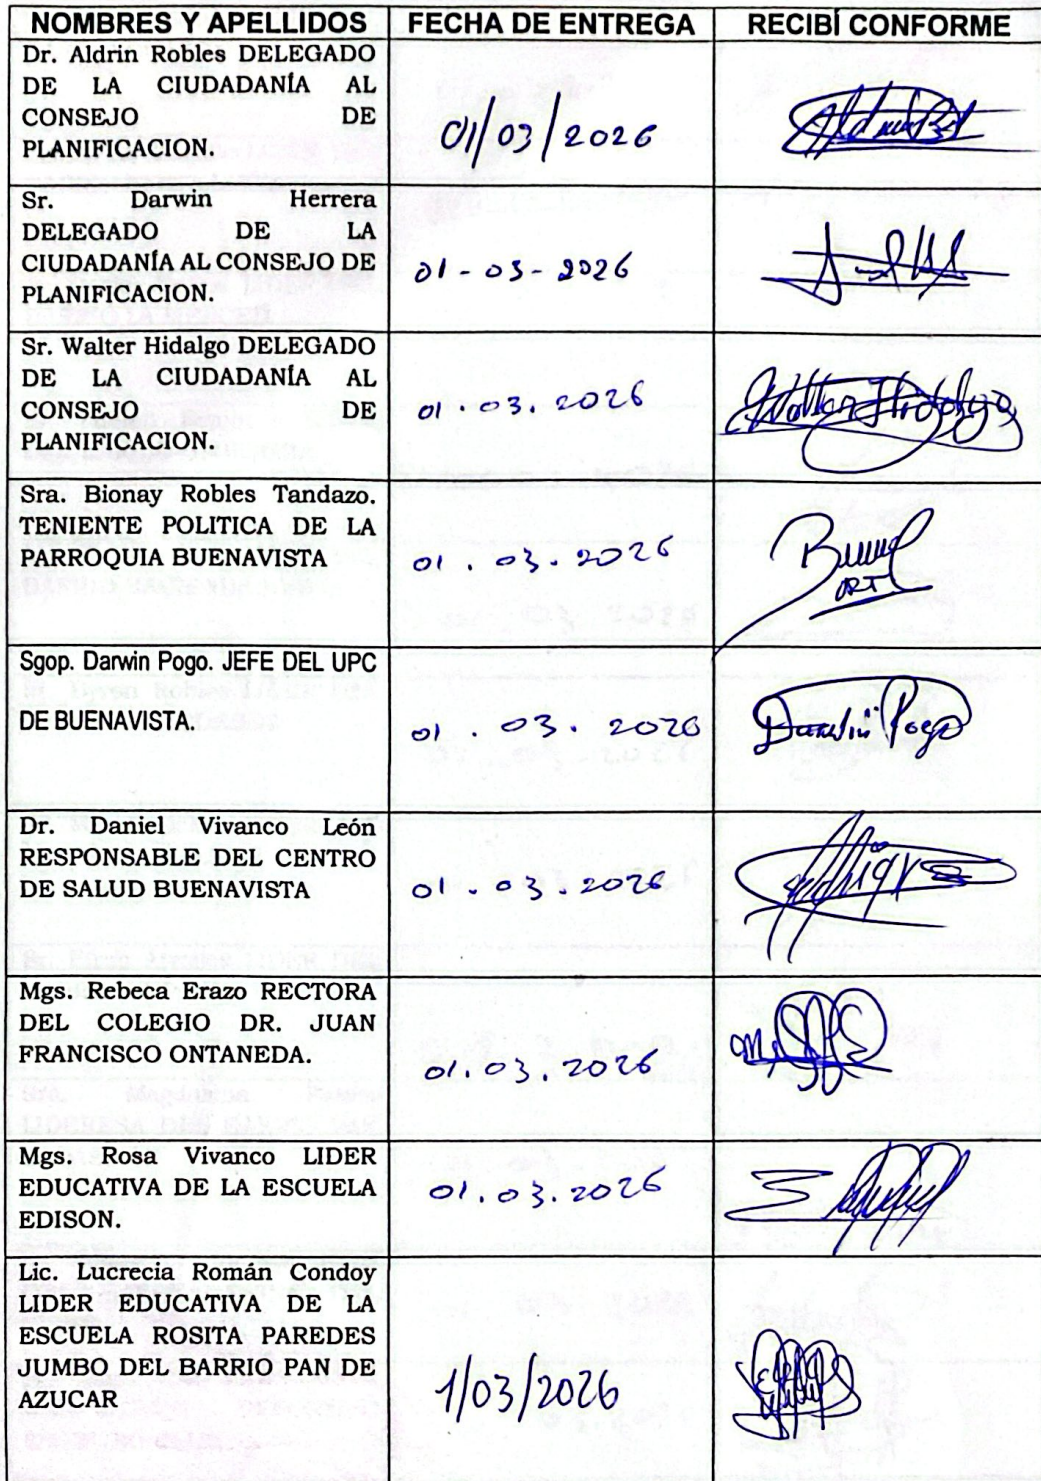 NOMBRES Y APELLIDOS FECHA DE ENTREGA RECIBÍ CONFORME
Dr. Aldrin Robles DELEGADO
DE LA CIUDADANÍA AL
CONSEJO DE
PLANIFICACION.
01/03/2026
Sr. Darwin Herrera
DELEGADO DE LA
CIUDADANÍA AL CONSEJO DE
PLANIFICACION.
01-03-2026
Sr. Walter Hidalgo DELEGADO
DE LA CIUDADANÍA AL
CONSEJO DE
PLANIFICACION.
01.03.2026
Walter Hidalgo
Sra. Bionay Robles Tandazo.
TENIENTE POLITICA DE LA
PARROQUIA BUENAVISTA
01.03.2026
Sgop. Darwin Pogo. JEFE DEL UPC
DE BUENAVISTA.
01.03.2026
Darwin Pogo
Dr. Daniel Vivanco León
RESPONSABLE DEL CENTRO
DE SALUD BUENAVISTA
01.03.2026
Mgs. Rebeca Erazo RECTORA
DEL COLEGIO DR. JUAN
FRANCISCO ONTANEDA.
01.03.2026
Mgs. Rosa Vivanco LIDER
EDUCATIVA DE LA ESCUELA
EDISON.
01.03.2026
Lic. Lucrecia Román Condoy
LIDER EDUCATIVA DE LA
ESCUELA ROSITA PAREDES
JUMBO DEL BARRIO PAN DE
AZUCAR
1/03/2026